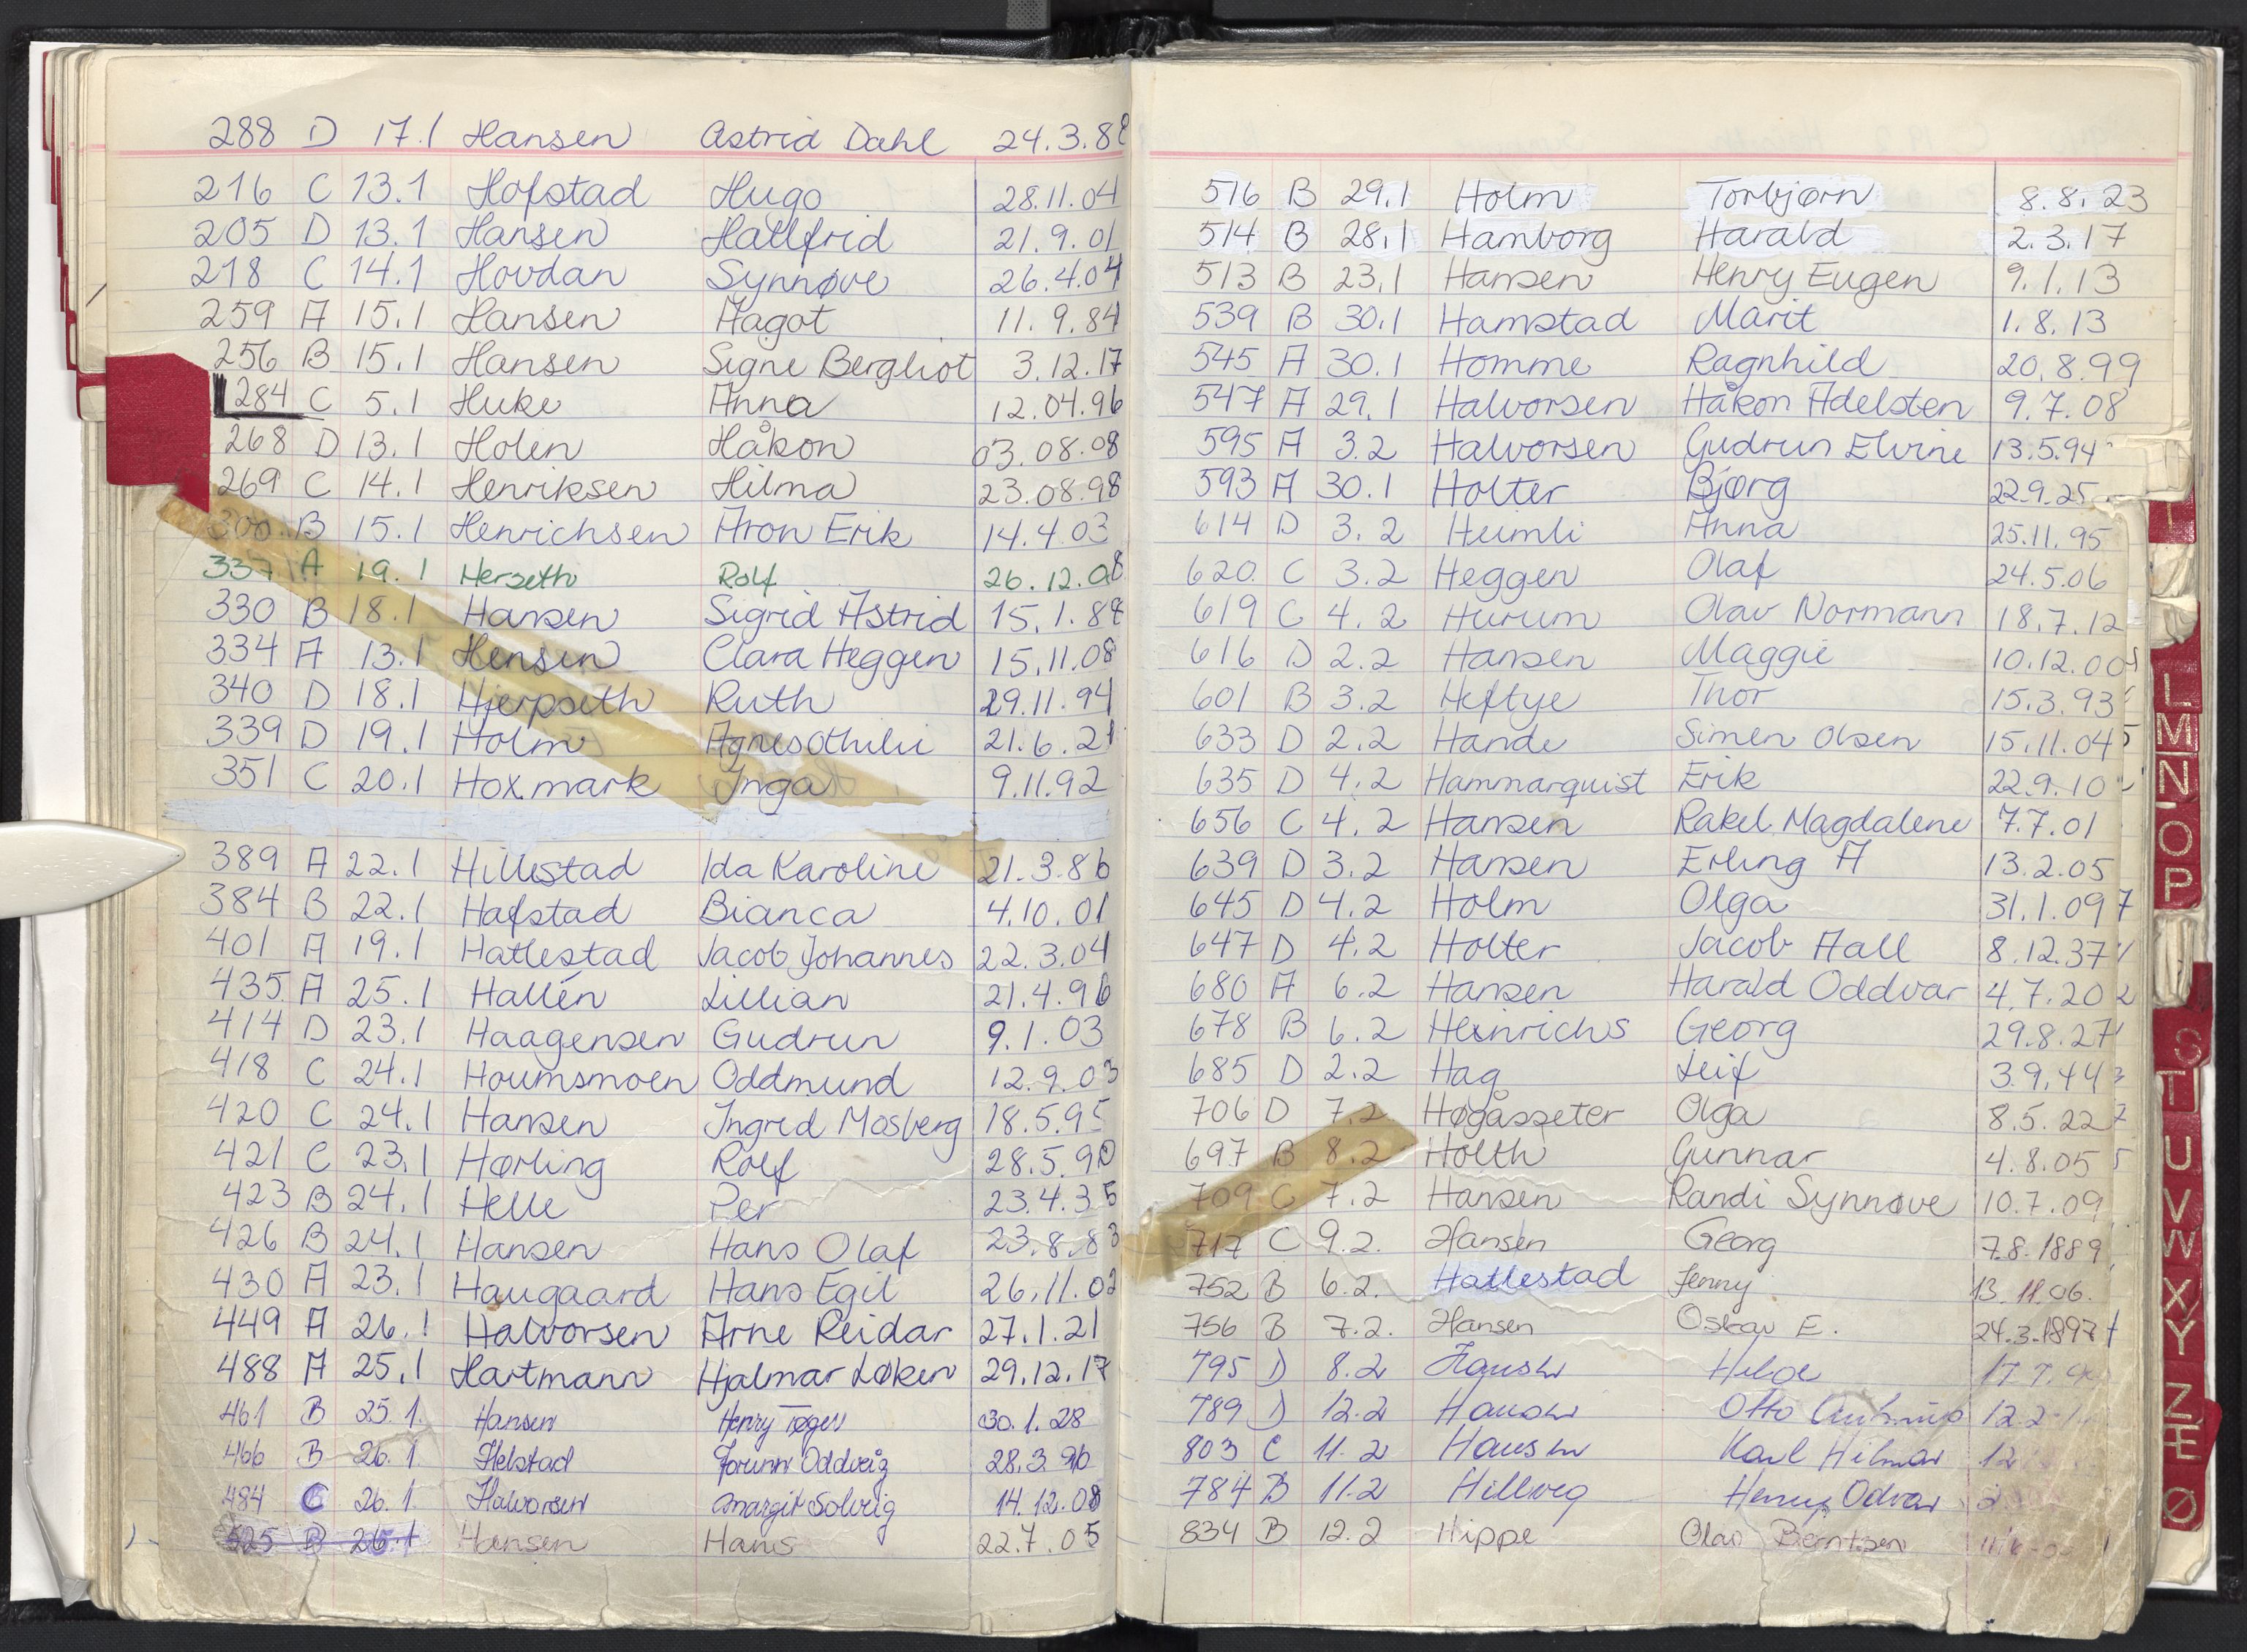 288 D 17.1 Hansen Astrid Dahl 24.3.88
216 C 13.1 Hofstad Hugo 28.11.04
205 D 13.1 Hansen Hallfrid 21.9.01
218 C 14.1 Hovdan Synnøve 26.4.04
259 A 15.1 Hansen Aagot 11.9.84
256 B 15.1 Hansen Signe Bergliot 3.12.17
284 C 5.1 Huke Anna 12.04.96
268 D 13.1 Holen Håkon 03.08.08
269 C 14.1 Henriksen Hilma 23.08.98
300 B 15.1 Henrichsen Aron Erik 14.4.03
337 A 19.1 Herseth Rolf 26.12.08
330 B 18.1 Hansen Sigrid Astrid 15.1.88
334 A 13.1 Hensen Clara Heggen 15.11.08
340 D 18.1 Hjerpseth Ruth 29.11.94
339 D 19.1 Holm Agnes Othilie 21.6.21
351 C 20.1 Hoxmark Inga 9.11.92
389 A 22.1 Hillestad Ida Karoline 21.3.86
384 B 22.1 Hafstad Bianca 4.10.01
401 A 19.1 Hatlestad Jacob Johannes 22.3.04
435 A 25.1 Hallén Lillian 21.4.96
414 D 23.1 Haagensen Gudrun 9.1.03
418 C 24.1 Houmsmoen Oddmund 12.9.03
420 C 24.1 Hansen Ingrid Mosberg 18.5.95
421 C 23.1 Hørling Rolf 28.5.90
423 B 24.1 Helle Per 23.4.35
426 B 24.1 Hansen Hans Olaf 23.8.83
430 A 23.1 Haugaard Hans Egil 26.11.02
449 A 26.1 Halvorsen Arne Reidar 27.1.21
488 A 25.1 Hartmann Hjalmar Løken 29.12.17
461 B 25.1. Hansen Henry Tøger 30.1.28
466 B 26.1. Helstad Jorunn Oddveig 28.3.96
484 C 26.1 Halvorsen Margit Solveig 14.12.08
525 B 26.1 Hansen Hans 22.7.05
516 B 29.1 Holm Torbjørn 8.8.23
514 B 28.1 Hamborg Harald 2.3.17
513 B 23.1 Hansen Henry Eugen 9.1.13
539 B 30.1 Hamstad Marit 1.8.13
545 A 30.1 Homme Ragnhild 20.8.99
547 A 29.1 Halvorsen Håkon Adelsten 9.7.08
595 A 3.2 Halvorsen Gudrun Elvine 13.5.94
593 A 30.1 Holter Bjørg 22.9.25
614 D 3.2 Heimli Anna 25.11.95
620 C 3.2 Heggen Olaf 24.5.06
619 C 4.2 Hurum Olav Normann 18.7.12
616 D 2.2 Hansen Maggie 10.12.00
601 B 3.2 Heftye Thor 15.3.93
633 D 2.2 Hande Simen Olsen 15.11.04
635 D 4.2 Hammarquist Erik 22.9.10
656 C 4.2 Hansen Rakel Magdalene 7.7.01
639 D 3.2 Hansen Erling A 13.2.05
645 D 4.2 Holm Olga 31.1.09
647 D 4.2 Holter Jacob Aall 8.12.37
680 A 6.2 Hansen Harald Oddvar 4.7.20
678 B 6.2 Heinrichs Georg 29.8.27
685 D 2.2 Hag Leif 3.9.44
706 D 7.2 Høgåsseter Olga 8.5.22
697 B 8.2 Holth Gunnar 4.8.05
709 C 7.2 Hansen Randi Synnøve 10.7.09
717 C 9.2. Hansen Georg 7.8.1889
752 B 6.2. Hatlestad Jenny 13.11.06.
756 B 7.2. Hansen Oskar E. 24.3.1897
795 D 8.2 Hansen Helge
789 D 12.2 Hansen Otto
803 C 11.2 Hansen Karl Hilmar
784 B 11.2 Hillveg Henry Odvar
834 B 12.2 Hippe Olav Berntsen
I
L
M
N
O
P
S
T
U
V
W
X
Y
Z
Æ
Ø